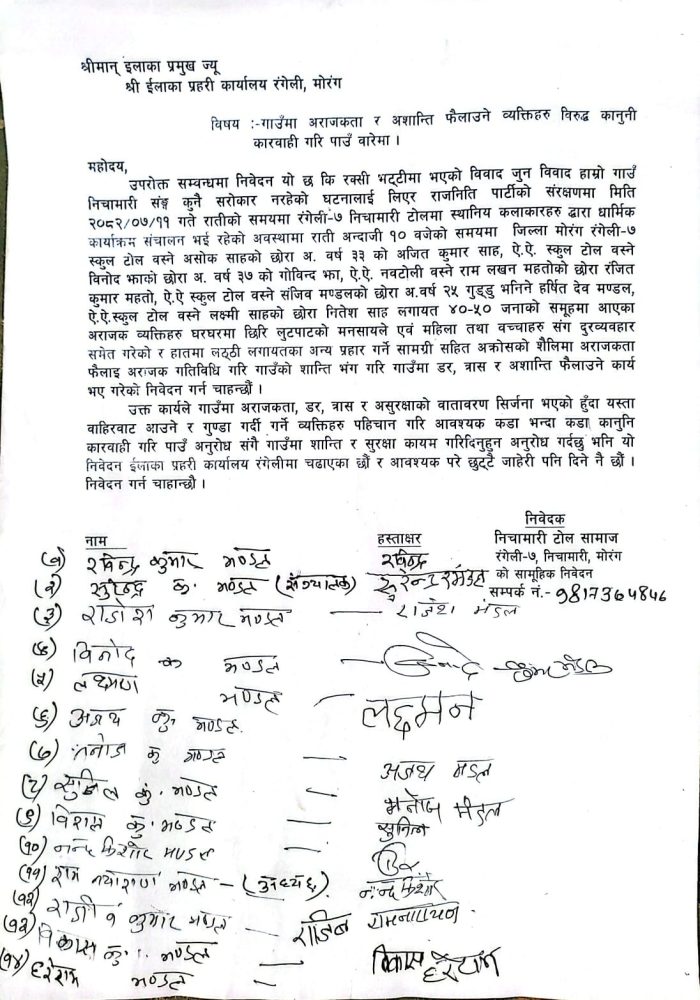 श्रीमान् इलाका प्रमुख ज्यू
श्री ईलाका प्रहरी कार्यालय रंगेली, मोरंग
विषय :-गाउँमा अराजकता र अशान्ति फैलाउने व्यक्तिहरु विरुद्ध कानुनी
कारवाही गरि पाउँ वारेमा ।
महोदय,
उपरोक्त सम्वन्धमा निवेदन यो छ कि रक्सी भट्टीमा भएको विवाद जुन विवाद हाम्रो गाउँ
निचामारी सङ्ग कुनै सरोकार नरहेको घटनालाई लिएर राजनिति पार्टीको संरक्षणमा मिति
२०८२/०७/११ गते रातीको समयमा रंगेली-७ निचामारी टोलमा स्थानिय कलाकारहरु द्वारा धार्मिक
कार्याक्रम संचालन भई रहेको अवस्थामा राती अन्दाजी १० वजेको समयमा जिल्ला मोरंग रंगेली-७
स्कुल टोल वस्ने असोक साहको छोरा अ. वर्ष ३३ को अजित कुमार साह, ऐ.ऐ. स्कुल टोल वस्ने
विनोद झाको छोरा अ. वर्ष ३७ को गोविन्द झा, ऐ.ऐ. नवटोली वस्ने राम लखन महतोको छोरा रंजित
कुमार महतो, ऐ.ऐ स्कुल टोल वस्ने संजिव मण्डलको छोरा अ.वर्ष २५ गुड्डु भनिने हर्षित देव मण्डल,
ऐ.ऐ.स्कुल टोल वस्ने लक्ष्मी साहको छोरा नितेश साह लगायत ४०-५० जनाको समूहमा आएका
अराजक व्यक्तिहरु घरघरमा छिरि लुटपाटको मनसायले एवं महिला तथा वच्चाहरु संग दुरव्यवहार
समेत गरेको र हातमा लठ्ठी लगायतका अन्य प्रहार गर्ने सामग्री सहित अक्रोसको शैलिमा अराजकता
फैलाइ अराजक गतिविधि गरि गाउँको शान्ति भंग गरि गाउँमा डर, त्रास र अशान्ति फैलाउने कार्य
भए गरेको निवेदन गर्न चाहन्छौं ।
उक्त कार्यले गाउँमा अराजकता, डर, त्रास र असुरक्षाको वातावरण सिर्जना भएको हुँदा यस्ता
वाहिरवाट आउने र गुण्डा गर्दी गर्ने व्यक्तिहरु पहिचान गरि आवश्यक कडा भन्दा कडा कानुनि
कारवाही गरि पाउँ अनुरोध संगै गाउँमा शान्ति र सुरक्षा कायम गरिदिनुहुन अनुरोध गर्दछु भनि यो
निवेदन ईलाका प्रहरी कार्यालय रंगेलीमा चढाएका छौं र आवश्यक परे छुट्टै जाहेरी पनि दिने नै छौं ।
निवेदन गर्न चाहान्छौ ।
निवेदक
नाम हस्ताक्षर निचामारी टोल सामाज
रंगेली-७, निचामारी, मोरंग
को सामूहिक निवेदन
सम्पर्क नं.- 9817364846
(१) रविन्द्र कुमार मण्डल रविन्द्र
(२) सुरेन्द्र कु. मण्डल
(३) राजेश कुमार मण्डल — राजेश मंडल
(४) विनोद कु मण्डल
(५) लक्ष्मण मण्डल — लछमन
(६) अजय कु. मण्डल
(७) मनोज कु मण्डल — अजय मंडल
(८) सुनिल कुं. मण्डल — मनोज मंडल
(९) विशाल कु. मण्डल — सुनिल
(१०) नन्द किशोर मण्डल —
(११) राम नारायण मण्डल - (अध्यक्ष) नन्द किशोर
(१२) राजीव कुमार मण्डल — राजिव रामनारायण
(१३) विकास कु. मण्डल — विकास
(१४) हरेराम मण्डल — हरेराम